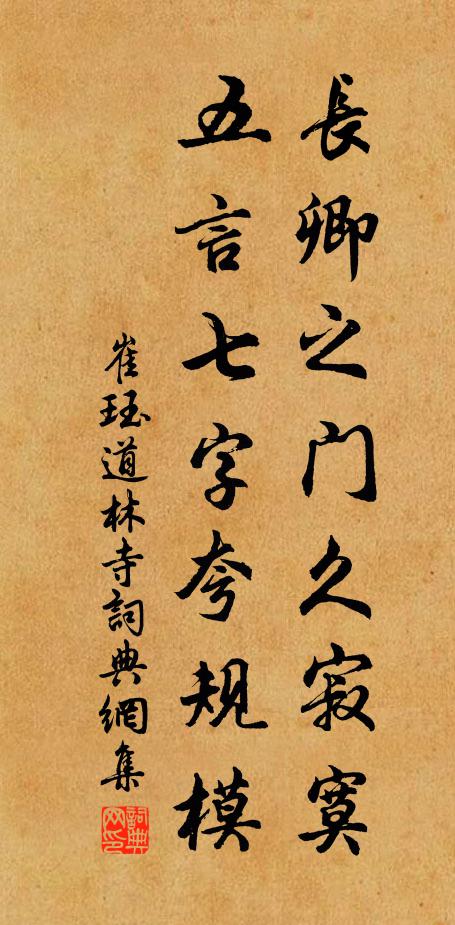 長卿之門久寂寞
五言七字夸規模
崔珏道林寺詞典網集
詞典网印